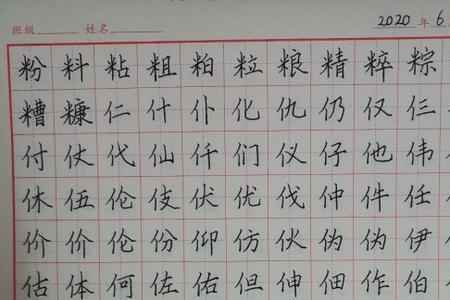 班级 姓名 2020年6
粉料粘粗粕粒粮精粹粽
糟糠仁什仆化仇仍仅仨
付仗代仙仟们仪仔他伟
休伍伦伎伏优伐仲件任
价价伦份仰仿伙伪伪伊
估体何佐佑但伸佃作伯